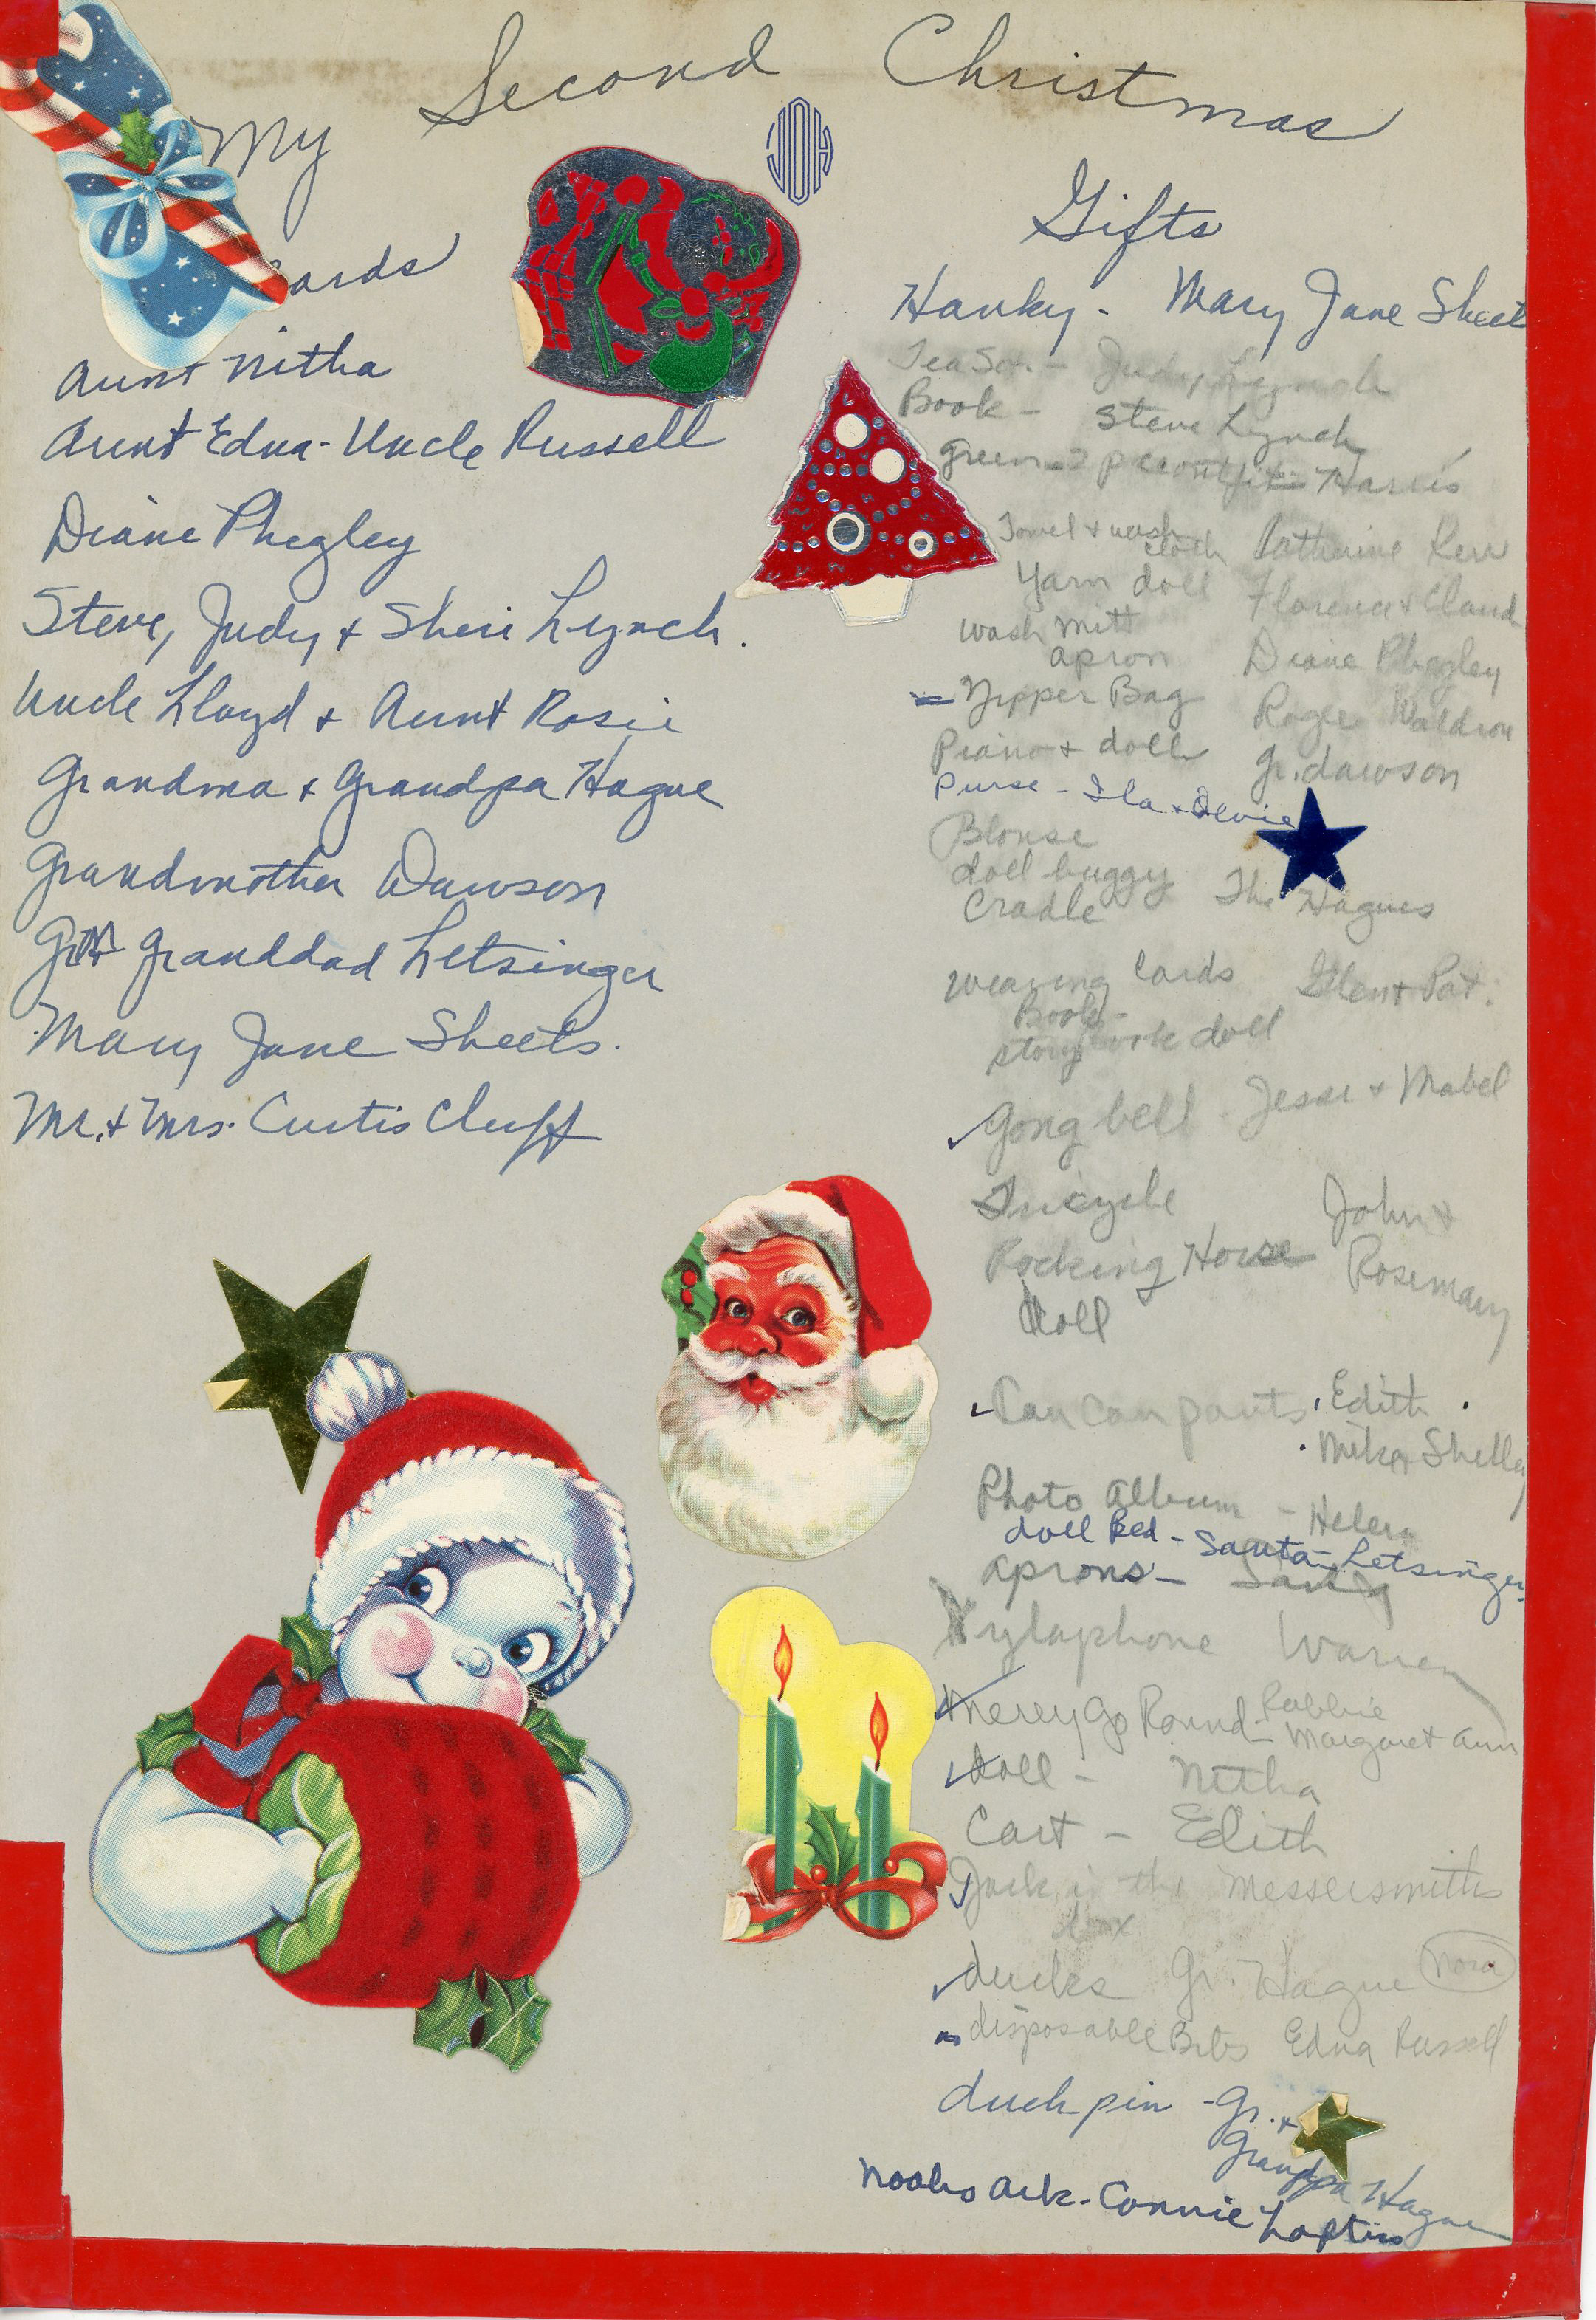 My Second Christmas
JOH
ards
Aunt Nitha
Aunt Edna - Uncle Russell
Diane Phegley
Steve, Judy & Sheri Lynch.
Uncle Lloyd & Aunt Rosie
Grandma & Grandpa Hague
Grandmother Dawson
Gr Granddad Letsinger
Mary Jane Sheets.
Mr. & Mrs. Curtis Cluff
Gifts
Hanky - Mary Jane Sheet
Tea Set - Judy Lynch
Book - Steve Lynch
green 2 pc outfit - Harris
Towel & wash cloth Catherine Kerr
Yarn doll Florence & Claud
Wash Mitt
apron Diane Phegley
Zipper Bag Roger Waldron
Piano & doll Gr. dawson
Purse - Ila & Olvie
Blouse
doll buggy The Hagues
Cradle
Weaving Cards Glen & Pat.
Book -
storybook doll
Gong bell Jesse & Mabel
Tricycle John &
Rocking Horse Rosemary
doll
Can Can pants Edith
Mike & Shelley
Photo Album - Helen
doll Bed - Santa - Letsinger
aprons - Sandy
Xylaphone Warren
Merry Go Round - Robbie
Margaret Ann
doll - Nitha
Cart - Edith
Jack in the Messersmiths
box
ducks Gr. Hague Nora
disposable Bibs Edna Russell
duck pin - Gr. &
Grandpa Hague
Noahs Ark - Connie Loftis